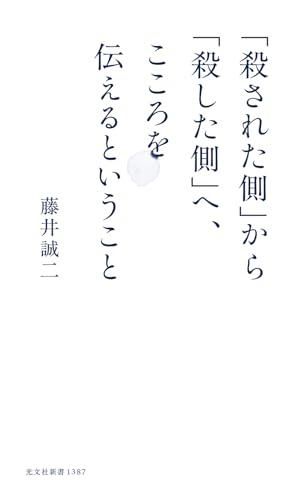 「殺された側」から
「殺した側」へ、
こころを
伝えるということ
藤井誠二
光文社新書 1387